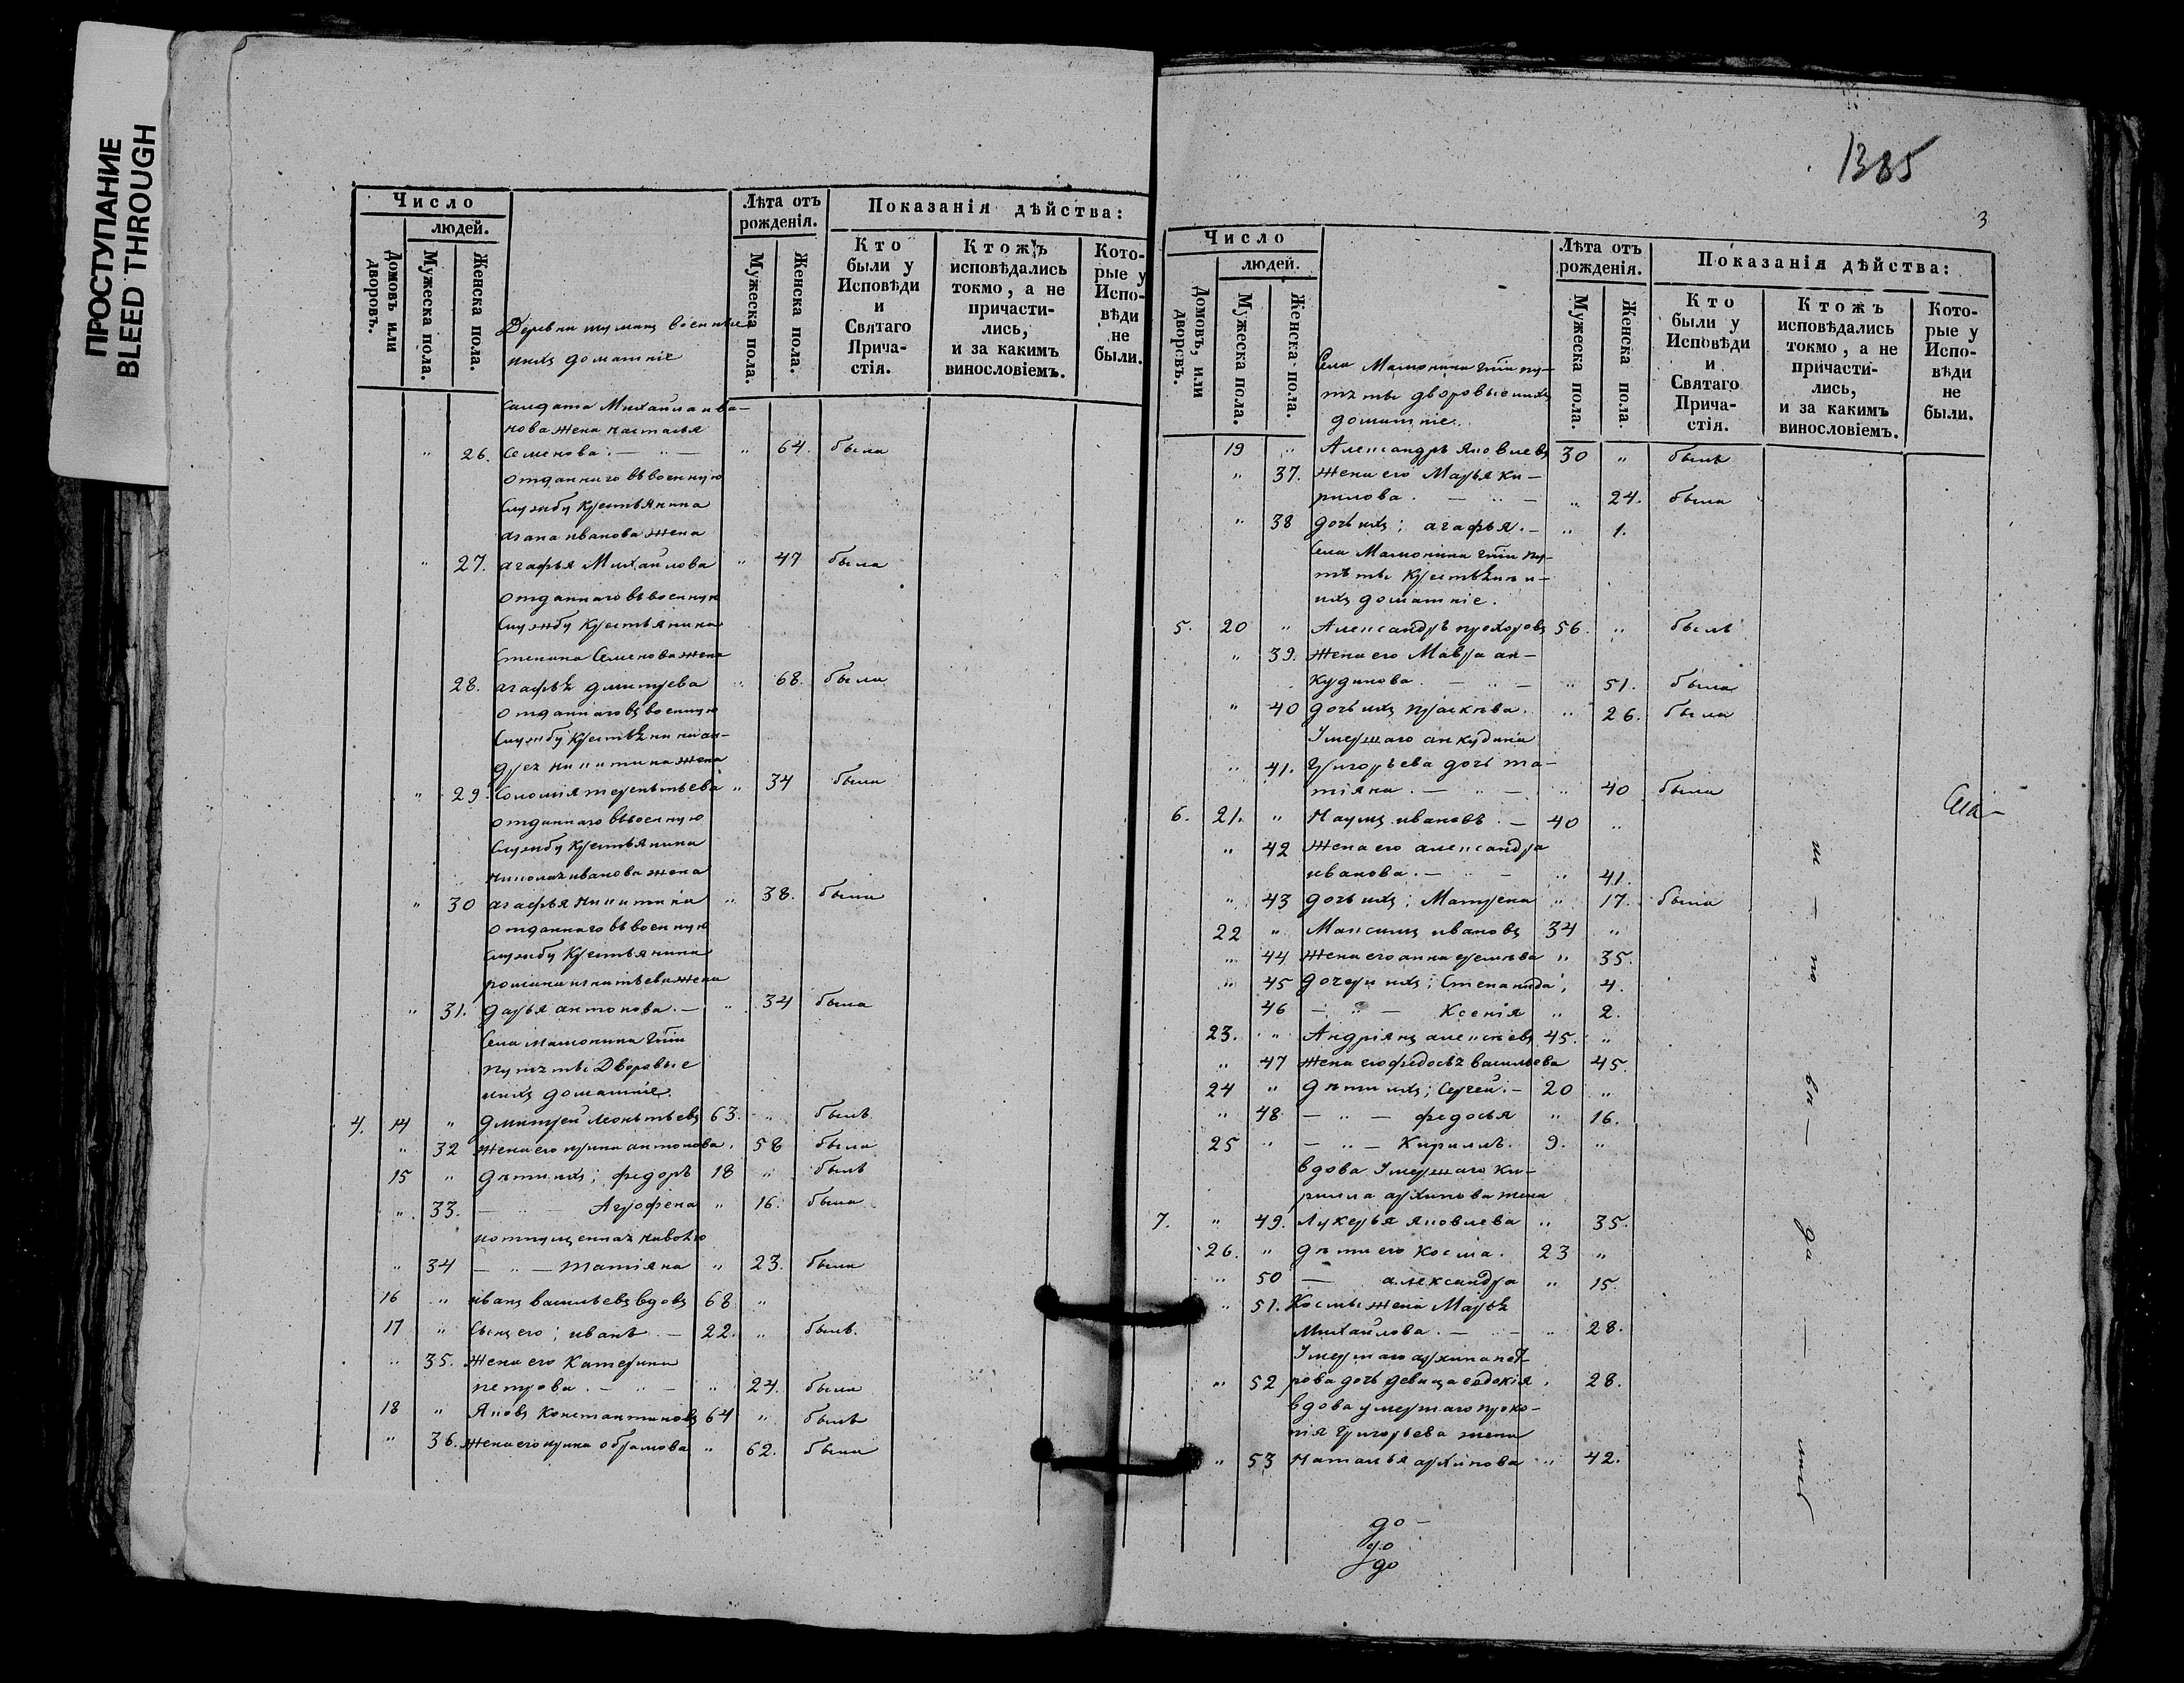 ПРОСТУПАНИЕ
BLEED THROUGH
Число
людей.
Домовъ или дворовъ.
Мужеска пола.
Женска пола.
Лѣта отъ рожденія.
Мужеска пола.
Женска пола.
Показанія дѣйства:
Кто были у Исповѣди и Святаго Причастія.
Ктожъ исповѣдались токмо, а не причастились, и за какимъ винословіемъ.
Которые у Исповѣди не были.
Деревни
ихъ домашніе
Салдата Михаила ива-
нова жена наталья
" 26. Семенова. — " — " 64. была
отданнаго въ военную
службу крестьянина
иванова жена
" 27. агафья Михайлова " 47 была
отданнаго въ военную
службу крестьянина
Степана Семенова жена
28. агафья дмитрева " 68. была
отданнаго въ военную
службу крестьянина ан-
дрея никитина жена
" 29. Соломія терентьева " 34 была
отданнаго въ военную
службу крестьянина
николая иванова жена
" 30 агафья никитина " 38. была
отданнаго въ военную
службу крестьянина
романа игнатьева жена
" 31. дарья антонова. — " 34 была
Села мамонина
Дворовые
ихъ домашніе.
4. 14 " дмитрей леонтьевъ 63. " былъ
" 32 жена его ирина антонова. 58 была
15 " дѣти ихъ; федоръ 18 " былъ
" 33. — " — Агрофена " 16. была
" 34 — " — татіяна " 23. была
16 " иванъ васильевъ вдовъ 68 "
17 " Сынъ его; иванъ — 22. " былъ.
" 35. жена его Катерина
петрова. — " — " 24. была
18 " Яковъ Константиновъ 64 " былъ
" 36. жена его ирина обрамова " 62. была
1385
3
Число
людей.
Домовъ, или дворовъ.
Мужеска пола.
Женска пола.
Лѣта отъ рожденія.
Мужеска пола.
Женска пола.
Показанія дѣйства:
Кто были у Исповѣди и Святаго Причастія.
Ктожъ исповѣдались токмо, а не причастились, и за какимъ винословіемъ.
Которые у Исповѣди не были.
Села Мамонина
дворовые ихъ
домашніе.
19 " Александръ яковлевъ 30 " былъ
" 37. жена его Марья Ки-
рилова. — " — " 24. была
" 38 дочь ихъ; агафья. — " 1.
Села Мамонина
крестьяни и
ихъ домашніе.
5. 20 " Александръ прохоровъ 56. " былъ
" 39. жена его Мавра ан-
кудинова. — " — " 51. была
" 40 дочь ихъ прасковья. " 26. была
Умершаго анкудина
" 41. Григорьева дочь та-
тіяна. — " — " 40 была
6. 21. " Наумъ ивановъ. — 40 "
" 42 жена его александра
иванова. — " — " 41.
" 43 дочь ихъ; Матрена " 17. была
22 " Максимъ ивановъ 34 "
" 44 жена его анна " 35.
" 45 дочери ихъ; Степанида 4.
46 — " — Ксенія " 2.
23. " Андріянъ алексѣевъ 45. "
" 47 жена его федосья васильева 45.
24 " дѣти ихъ; Сергей. — 20 "
" 48 — " — федосья " 16.
25 " — " — Кириллъ. 9. "
вдова Умершаго Ки-
рилла архипова жена
7. " 49. лукерья яковлева " 35.
26. " дѣти его Косма. 23 "
" 50 — александра " 15.
" 51. Космы жена Марья
Михайлова. — " — " 28.
Умершаго архипа пет-
" 52 рова дочь девица евдокія. 28.
вдова умершаго проко-
пія Григорьева жена
" 53 наталья архипова " 42.
до
до
до